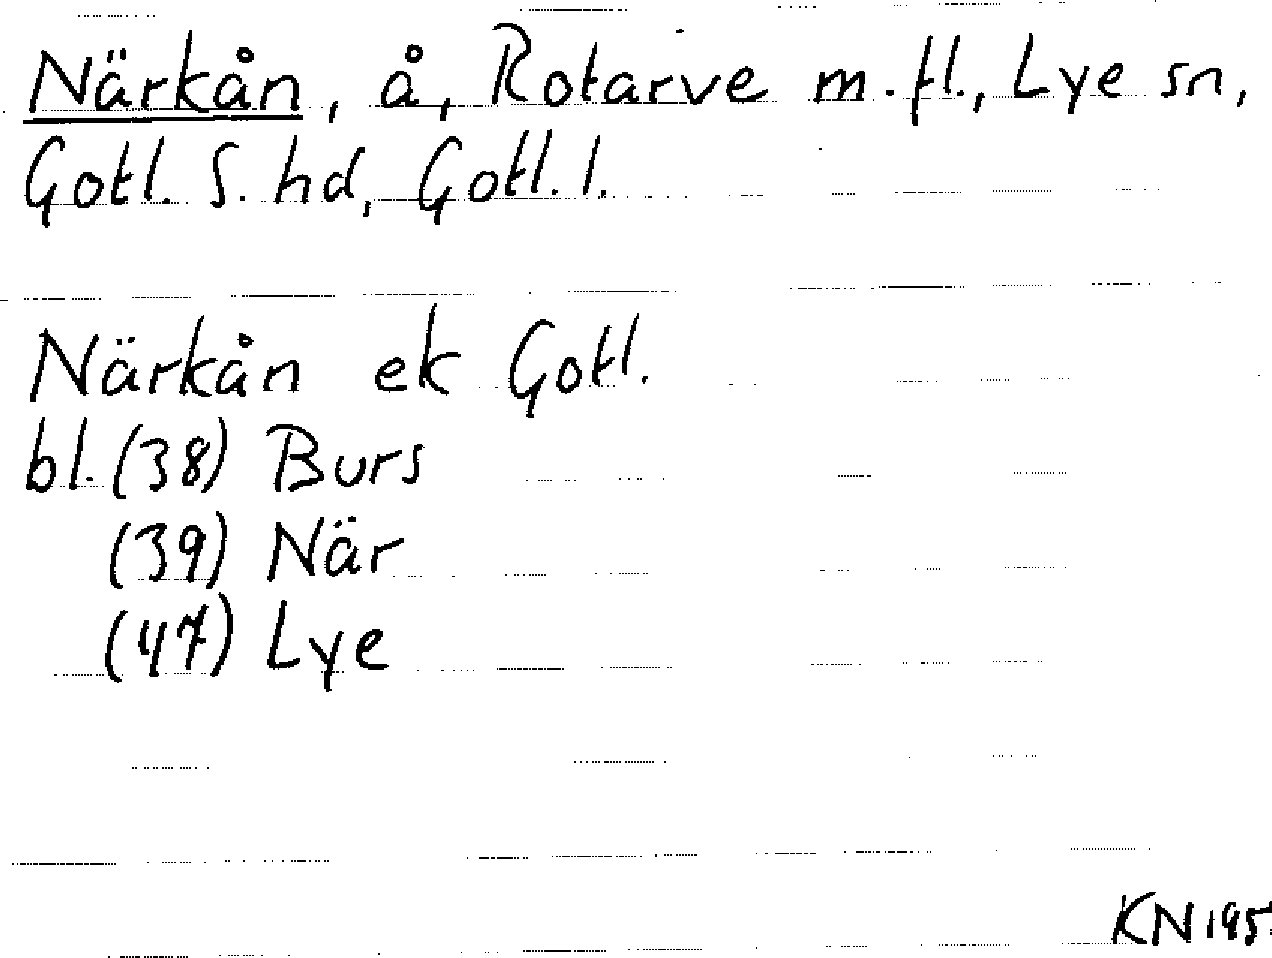 Närkån, å, Rotarve m.fl., Lye sn,
Gotl. S. hd, Gotl. l.
Närkån ek Gotl.
bl. (38) Burs
(39) När
(47) Lye
KN 195